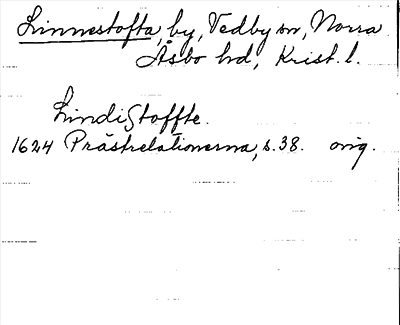 Linnestofta, by, Vedby sn, Norra
Åsbo hd, Krist. l.
LindiStoffte.
1624 Prästrelationerna, s. 38. orig.